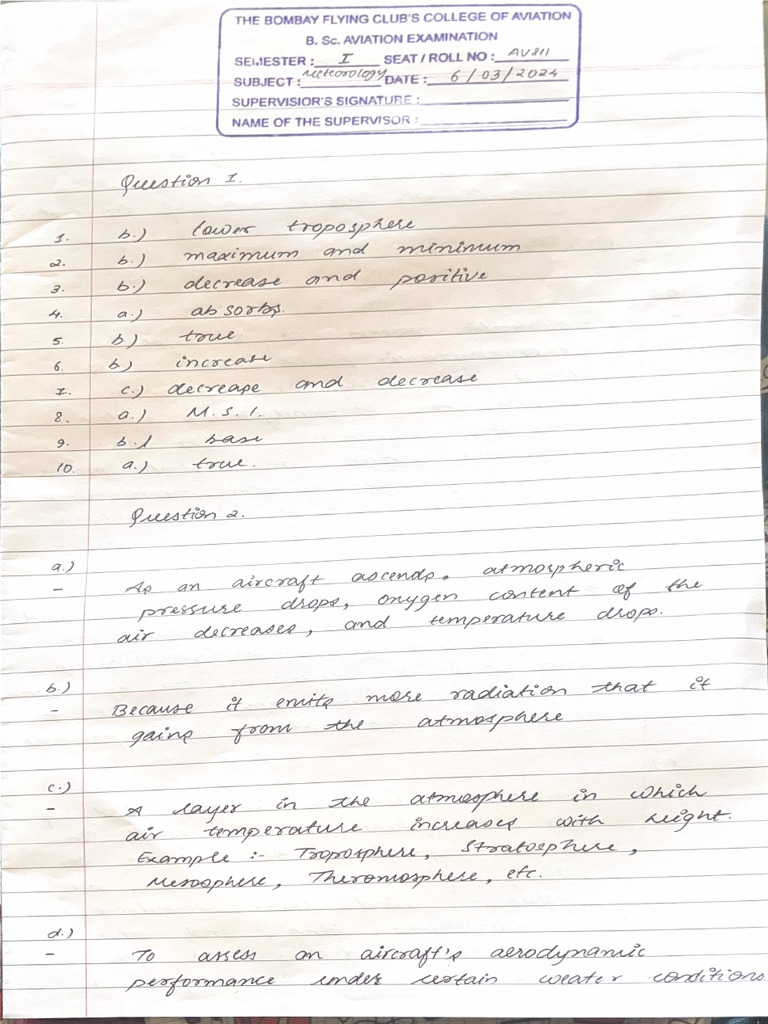 THE BOMBAY FLYING CLUB'S COLLEGE OF AVIATION
B. Sc. AVIATION EXAMINATION
SEMESTER : I SEAT / ROLL NO : AV811
SUBJECT : Meteorology DATE : 6 / 03 / 2024
SUPERVISIOR'S SIGNATURE :
NAME OF THE SUPERVISOR :
Question 1.
1. b.) lower troposphere
2. b.) maximum and minimum
3. b.) decrease and positive
4. a.) absorbs.
5. b) true
6. b) increase
7. c.) decrease and decrease
8. a.) M.S.I.
9. b.) base
10. a.) true.
Question 2.
a.)
- As an aircraft ascends, atmospheric
pressure drops, oxygen content of the
air decreases, and temperature drops.
b.)
- Because it emits more radiation that it
gains from the atmosphere
c.)
- A layer in the atmosphere in which
air temperature increases with height.
Example :- Troposphere, Stratosphere,
Mesosphere, Theromosphere, etc.
d.)
- To assess an aircraft's aerodynamic
performance under certain weater conditions